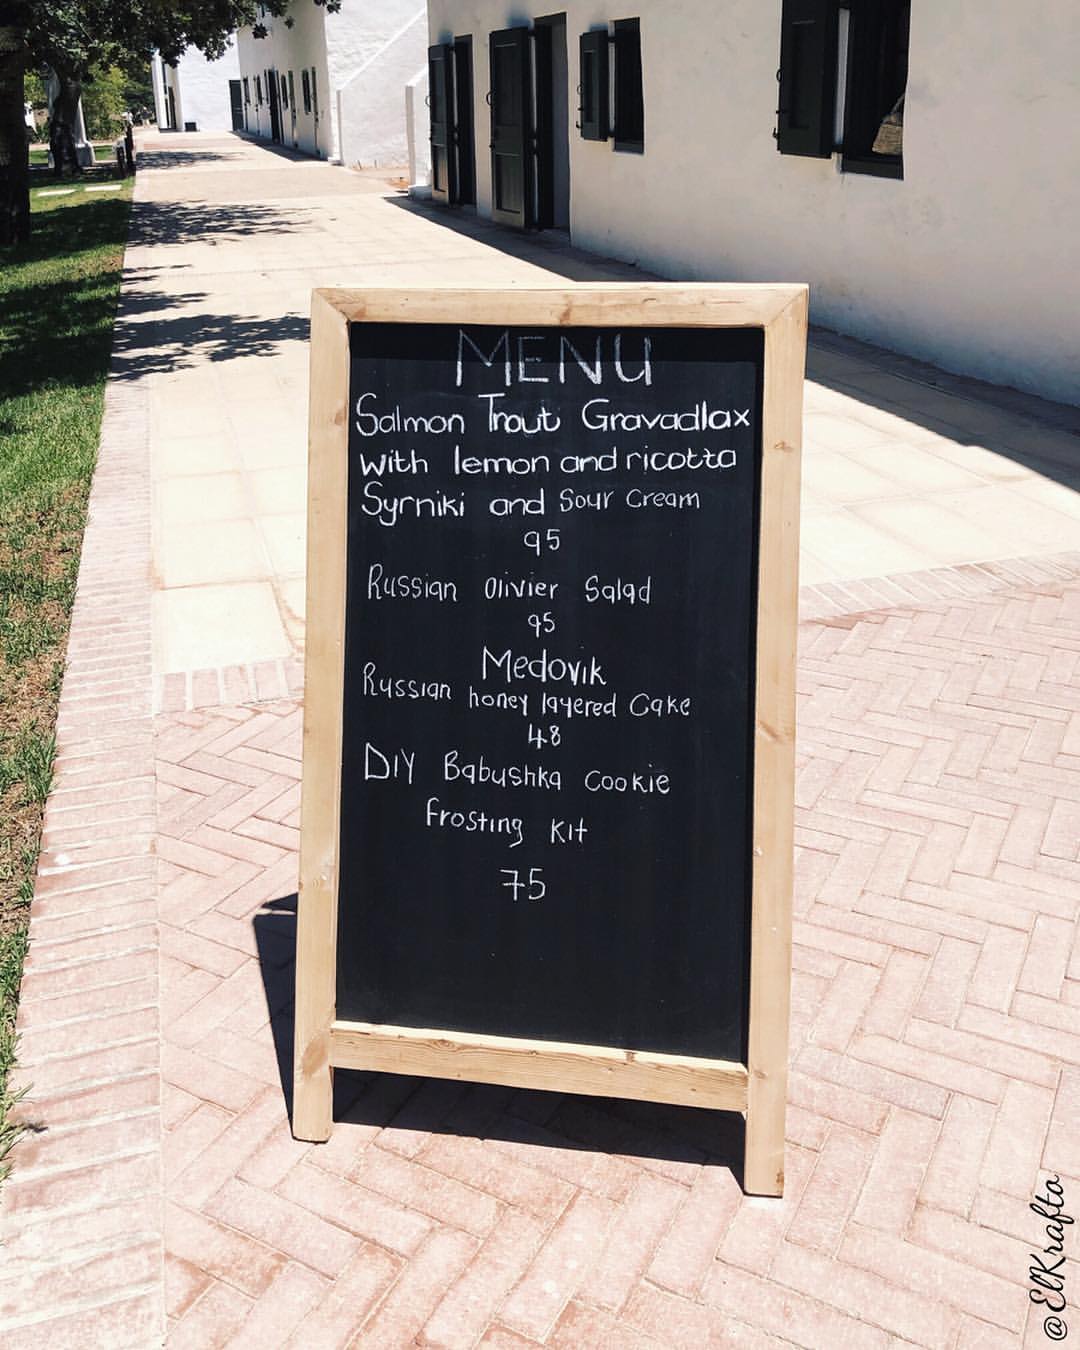 MENU
Salmon Trout Gravadlax
with lemon and ricotta
Syrniki and Sour Cream
95
Russian Olivier Salad
95
Medovik
Russian honey layered Cake
48
DIY Babushka Cookie
frosting Kit
75
@ElKrafto